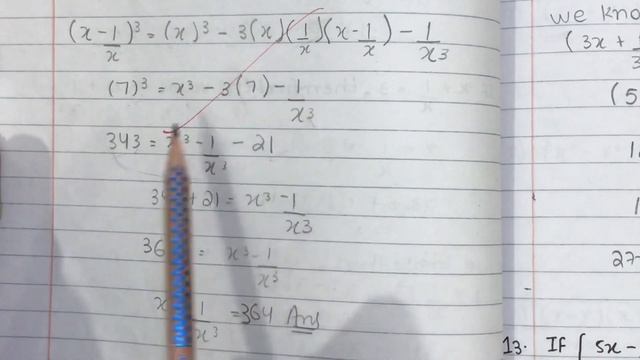 (x - 1/x)³ = (x)³ - 3(x)(1/x)(x - 1/x) - 1/x³
(7)³ = x³ - 3(7) - 1/x³
343 = x³ - 1/x³ - 21
+ 21 = x³ - 1/x³
36 = x³ - 1/x³
x 1/x³ = 364 Ans
we
(3x +
(5
27
13. If [5x -